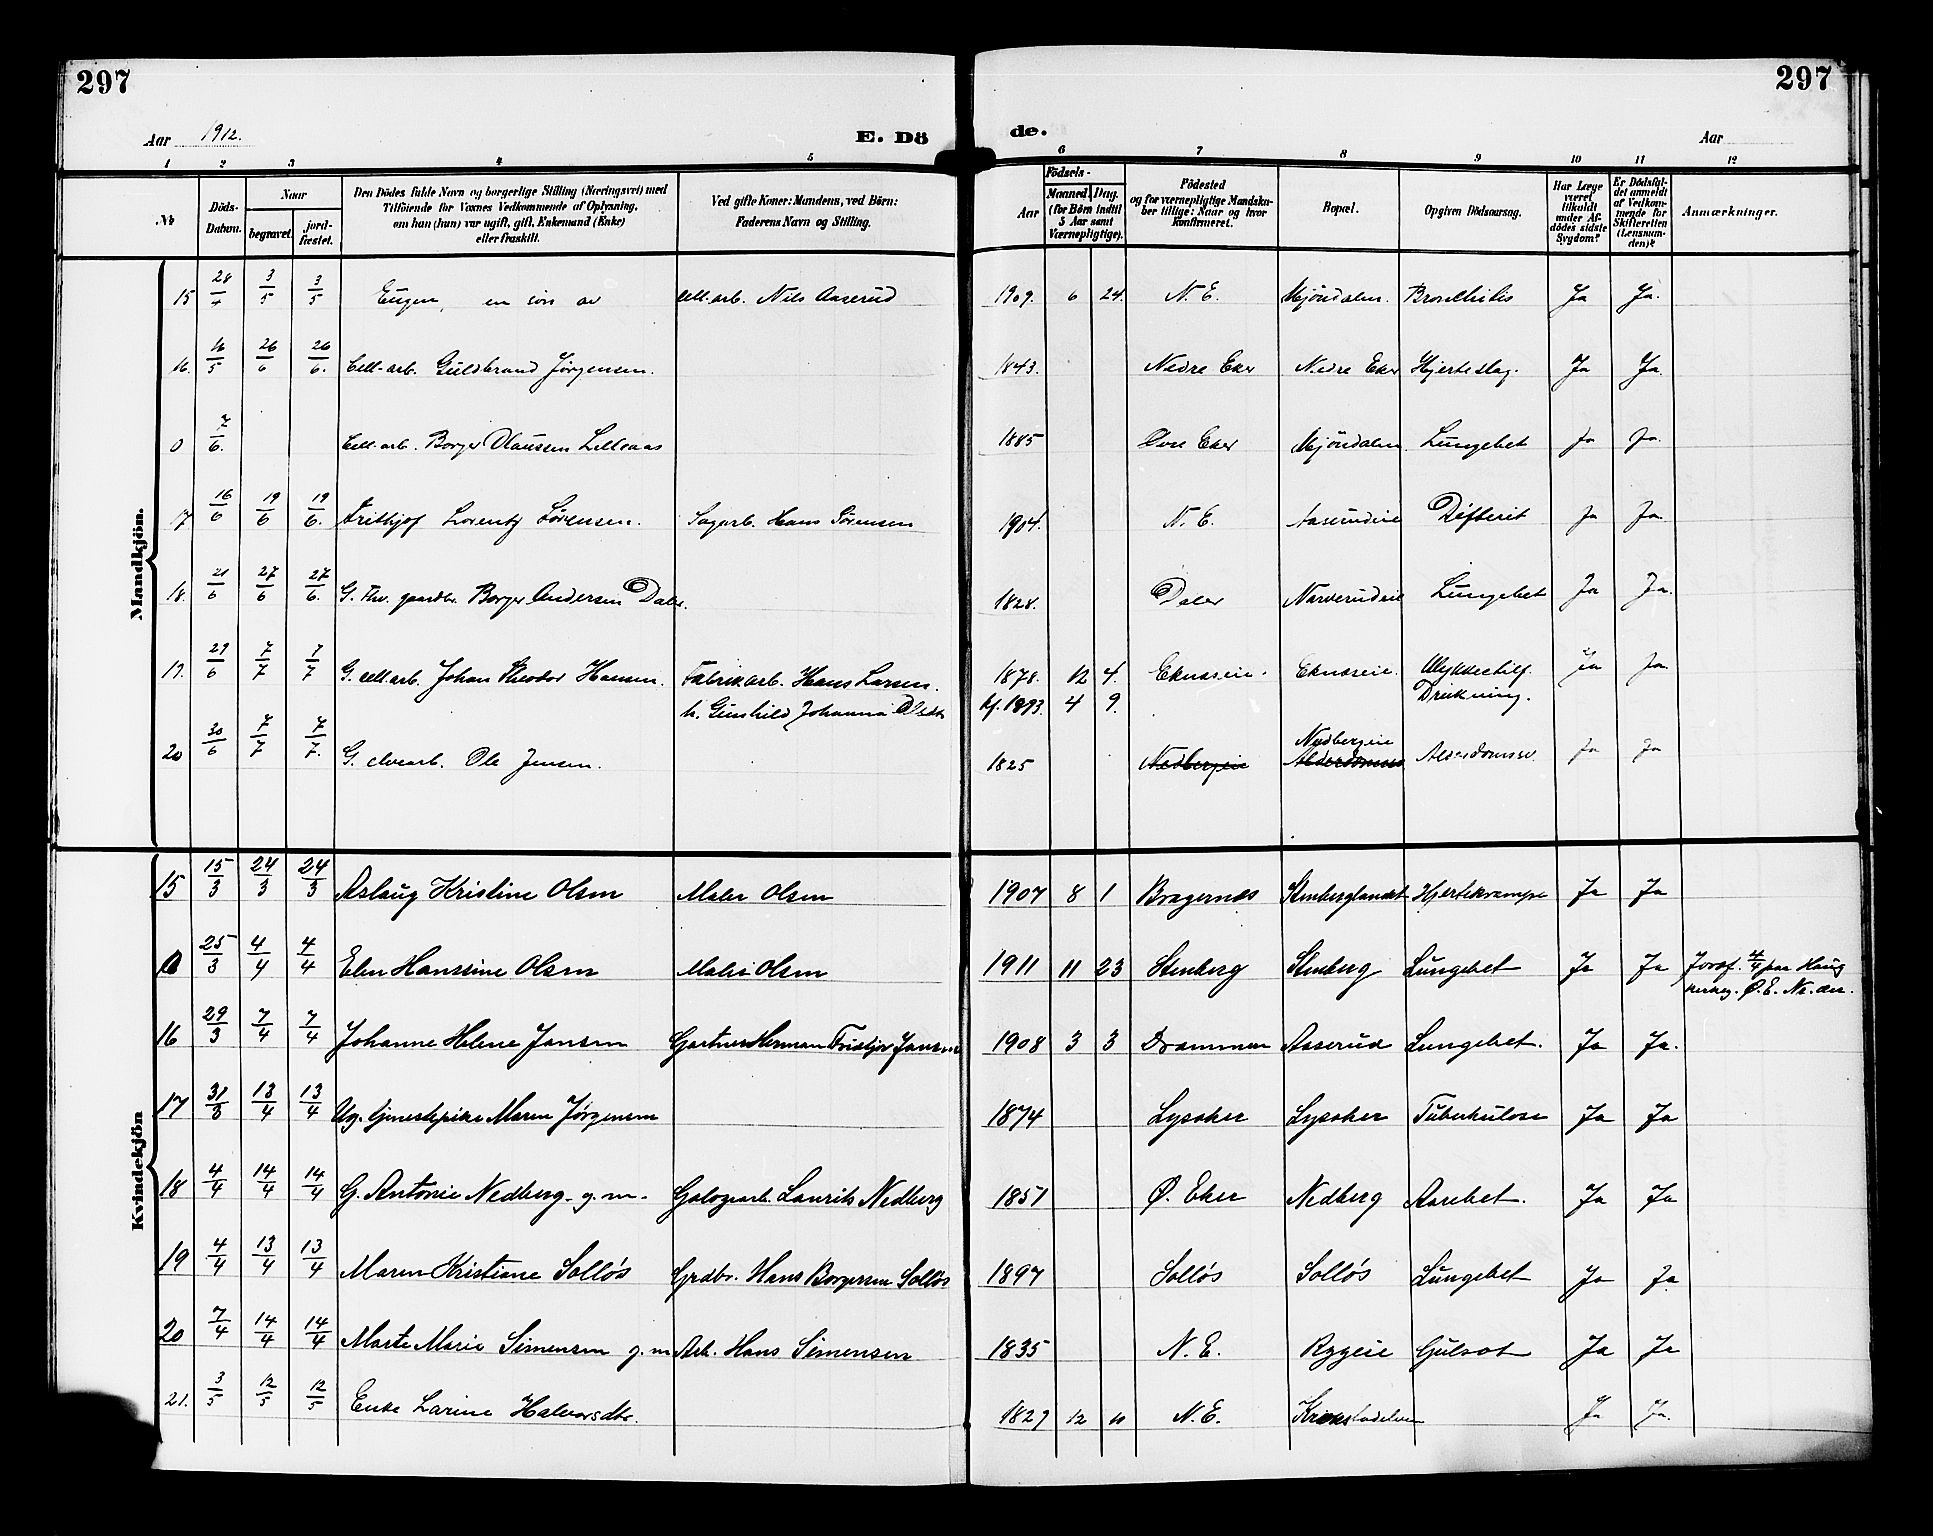 297
297
Aar 1912.
E. Dö
de.
Aar
1 2 3 4 5 6 7 8 9 10 11 12
№
Döds-Datum.
Naar
begravet.
jord-fæstet.
Den Dödes fulde Navn og borgerlige Stilling (Næringsvei) med Tilföiende for Voxnes Vedkommende af Oplysning, om han (hun) var ugift, gift, Enkemand (Enke) eller fraskilt.
Ved gifte Koner: Mandens, ved Börn: Faderens Navn og Stilling.
Födsels-
Aar
Maaned. Dag. (for Börn indtil 5 Aar samt Værnepligtige).
Födested og for værnepligtige Mandskaber tillige: Naar og hvor Konfirmeret.
Bopæl.
Opgiven Dödsaarsag.
Har Læge været tilkaldt under Afdödes sidste Sygdom?
Er Dödsfaldet anmeldt af Vedkommende for Skifteretten (Lensmanden)?
Anmærkninger.
Mandkjön.
15 28/4 3/5 3/5 Eugen, en sön av cell.arb. Nils Aaserud 1909. 6 24. N. E. Mjöndalen. Ja Ja.
16. 16/5 26/6 26/6. Cell-arb. Guldbrand Jørgensen. 1843. Nedre Eker Nedre Eker Hjerteslag. Ja Ja.
0 7/6. Cell-arb. Borger Olaussen Lilleaas 1885 Øvre Eker Mjöndalen Lungebet Ja Ja.
17 16/6 19/6 19/6. Frithjof Lorentz Sørensen. Sagarb. Hans Sörensen 1904. N. E. Aaserudeie Difterit Ja Ja.
18. 21/6 27/6 27/6. G. Fhv. gaardbr. Borger Andersen Daler. 1828. Daler Narverudeie Lungebet Ja Ja.
19. 29/6 7/7 7/7 G. cell.arb. Johan Theodor Hansen. Fabrikarb. Hans Larsen. 1878. 12 4. Eknæseie. Eknæseie. Ulykkestilf. Ja Ja
h. Gunhild Johanna Olsdtr kf. 1893. 4 9. Drukning.
20 30/6 7/7 7/7. G. elvearb. Ole Jensen. 1825 Nedbergeie Nedbergeie Alderdomssv. Alderdomssv. Ja Ja
Kvindekjön
15 15/3 24/3 24/3 Aslaug Kristine Olsen Maler Olsen 1907 8 1 Bragernes Stenberglandet Hjertekrampe Ja Ja
0 25/3 4/4 4/4 Elen Hanssine Olsen Maler Olsen 1911 11 23 Stenberg Stenberg Lungebet Ja Ja Jordf. 4/4 paa Haug
kirkeg. Ø. E.
16 29/3 7/4 7/4 Johanne Helene Jansen Gartner Herman Fristjov Jansen 1908 3 3 Drammen Aaserud Lungebet. Ja Ja.
17 31/3 13/4 13/4 Ug. tjenestepike Maren Jørgensen 1874 Lysaker Lysaker Tuberkulose Ja Ja
18 4/4 14/4 14/4 G. Antonie Nedberg. g. m. Galogearb. Laurits Nedberg 1851 Ø. Eker Nedberg Aarebet. Ja Ja
19 4/4 13/4 13/4 Maren Kristiane Solløs Grdbr. Hans Borgersen Solløs 1897 Solløs Solløs Lungebet Ja Ja
20 7/4 14/4 14/4 Marte Marie Simensen g. m. Arb. Hans Simensen 1835 N. E. Ryggeie Gulsot Ja Ja
21. 3/5 12/5 12/5 Enke Larine Halvorsdtr. 1829 12 N. E. Krokstadelven Ja Ja.